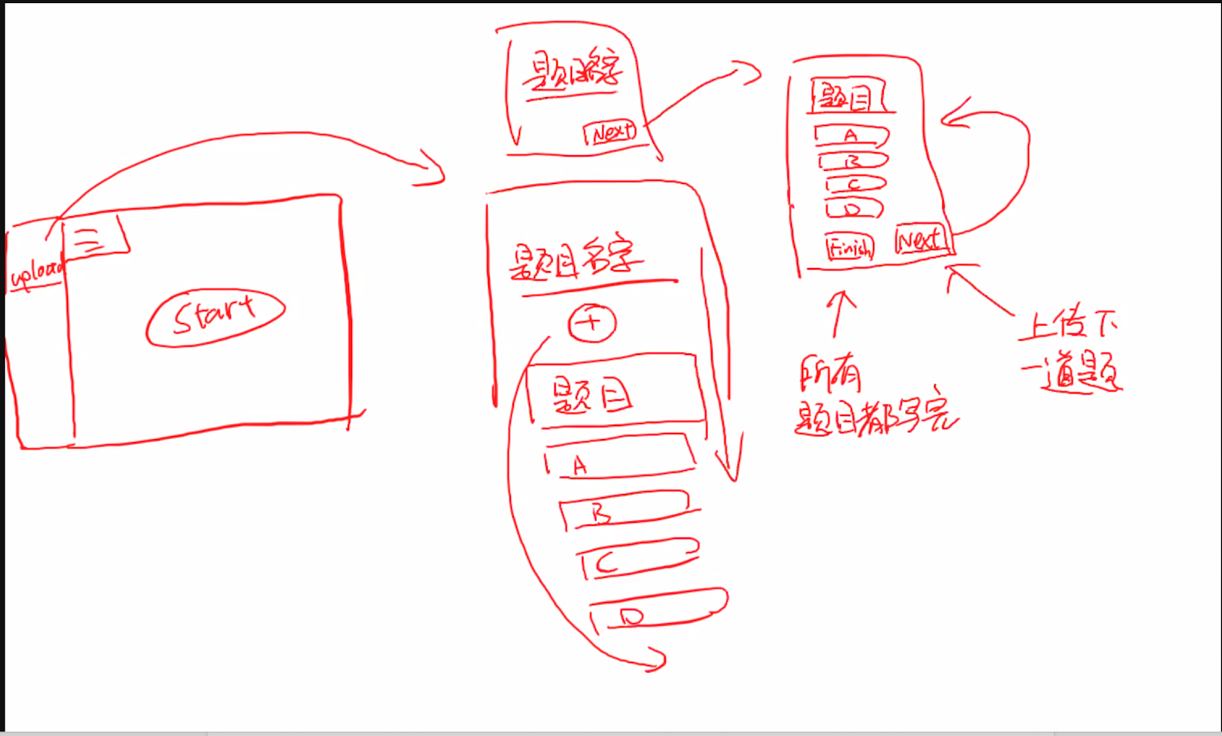 upload
Start
题目名字
Next
题目名字
+
题目
A
B
C
D
题目
A
B
C
D
Finish
Next
所有
题目都写完
上传下
一道题